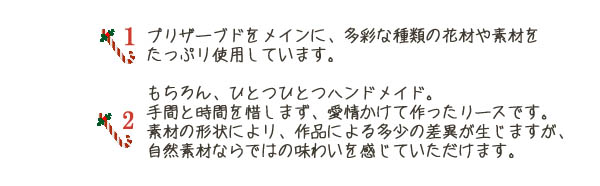 1 プリザーブドをメインに、多彩な種類の花材や素材を
たっぷり使用しています。
もちろん、ひとつひとつハンドメイド。
2 手間と時間を惜しまず、愛情かけて作ったリースです。
素材の形状により、作品による多少の差異が生じますが、
自然素材ならではの味わいを感じていただけます。